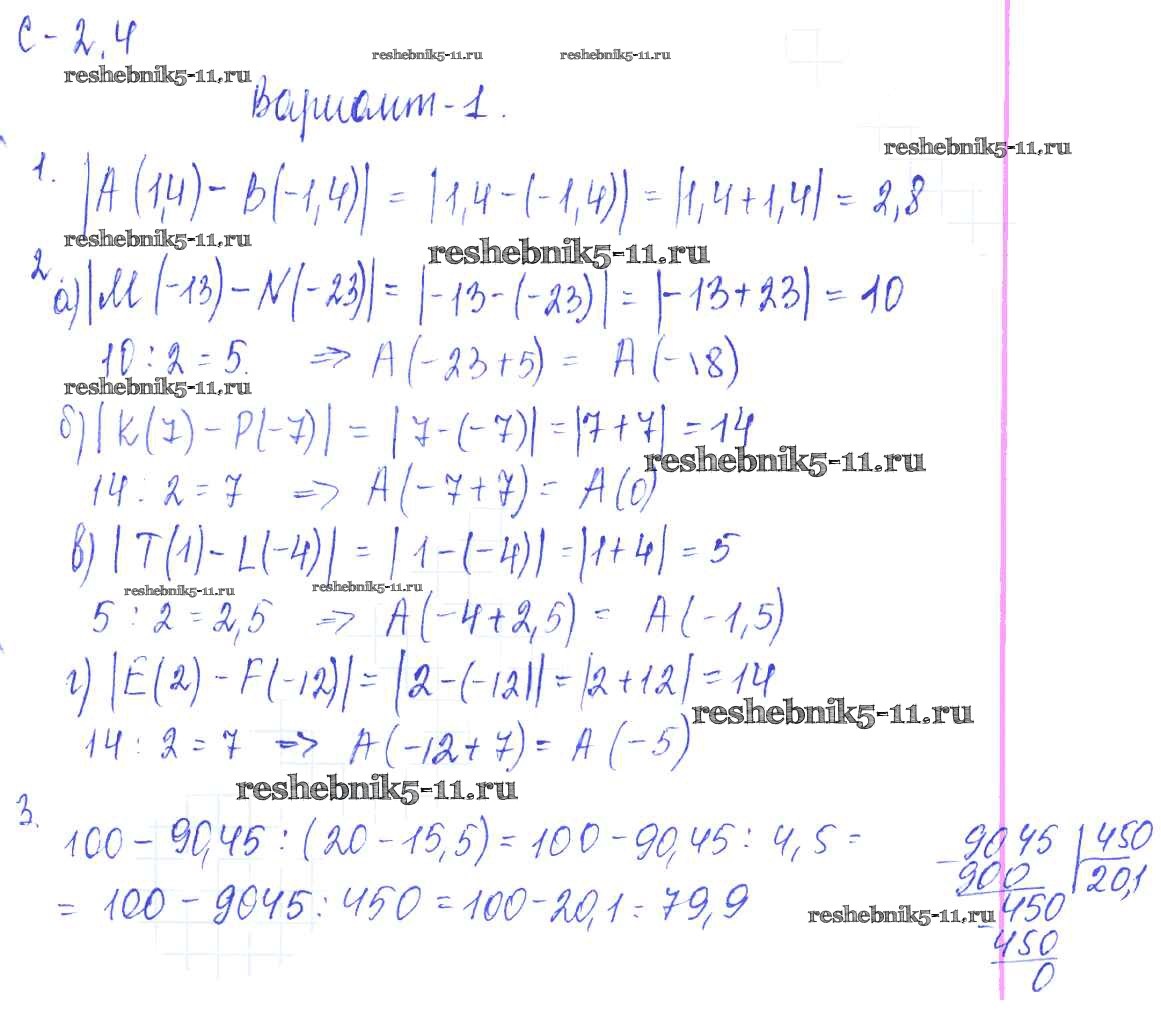 С-2,4
reshebnik5-11.ru reshebnik5-11.ru
reshebnik5-11.ru
Вариант-1.
reshebnik5-11.ru
1. |A(1,4) - B(-1,4)| = |1,4-(-1,4)| = |1,4+1,4| = 2,8
reshebnik5-11.ru reshebnik5-11.ru
2. а) |M(-13) - N(-23)| = |-13-(-23)| = |-13+23| = 10
10 : 2 = 5. => A(-23+5) = A(-18)
reshebnik5-11.ru
б) |K(7) - P(-7)| = |7-(-7)| = |7+7| = 14
reshebnik5-11.ru
14 : 2 = 7 => A(-7+7) = A(0)
в) |T(1) - L(-4)| = |1-(-4)| = |1+4| = 5
reshebnik5-11.ru reshebnik5-11.ru
5 : 2 = 2,5 => A(-4+2,5) = A(-1,5)
г) |E(2) - F(-12)| = |2-(-12)| = |2+12| = 14
reshebnik5-11.ru
14 : 2 = 7 => A(-12+7) = A(-5)
reshebnik5-11.ru
3. 100 - 90,45 : (20 - 15,5) = 100 - 90,45 : 4,5 =
= 100 - 9045 : 450 = 100 - 20,1 = 79,9
reshebnik5-11.ru
- 9045 | 450
900 | 20,1
- 450
450
0